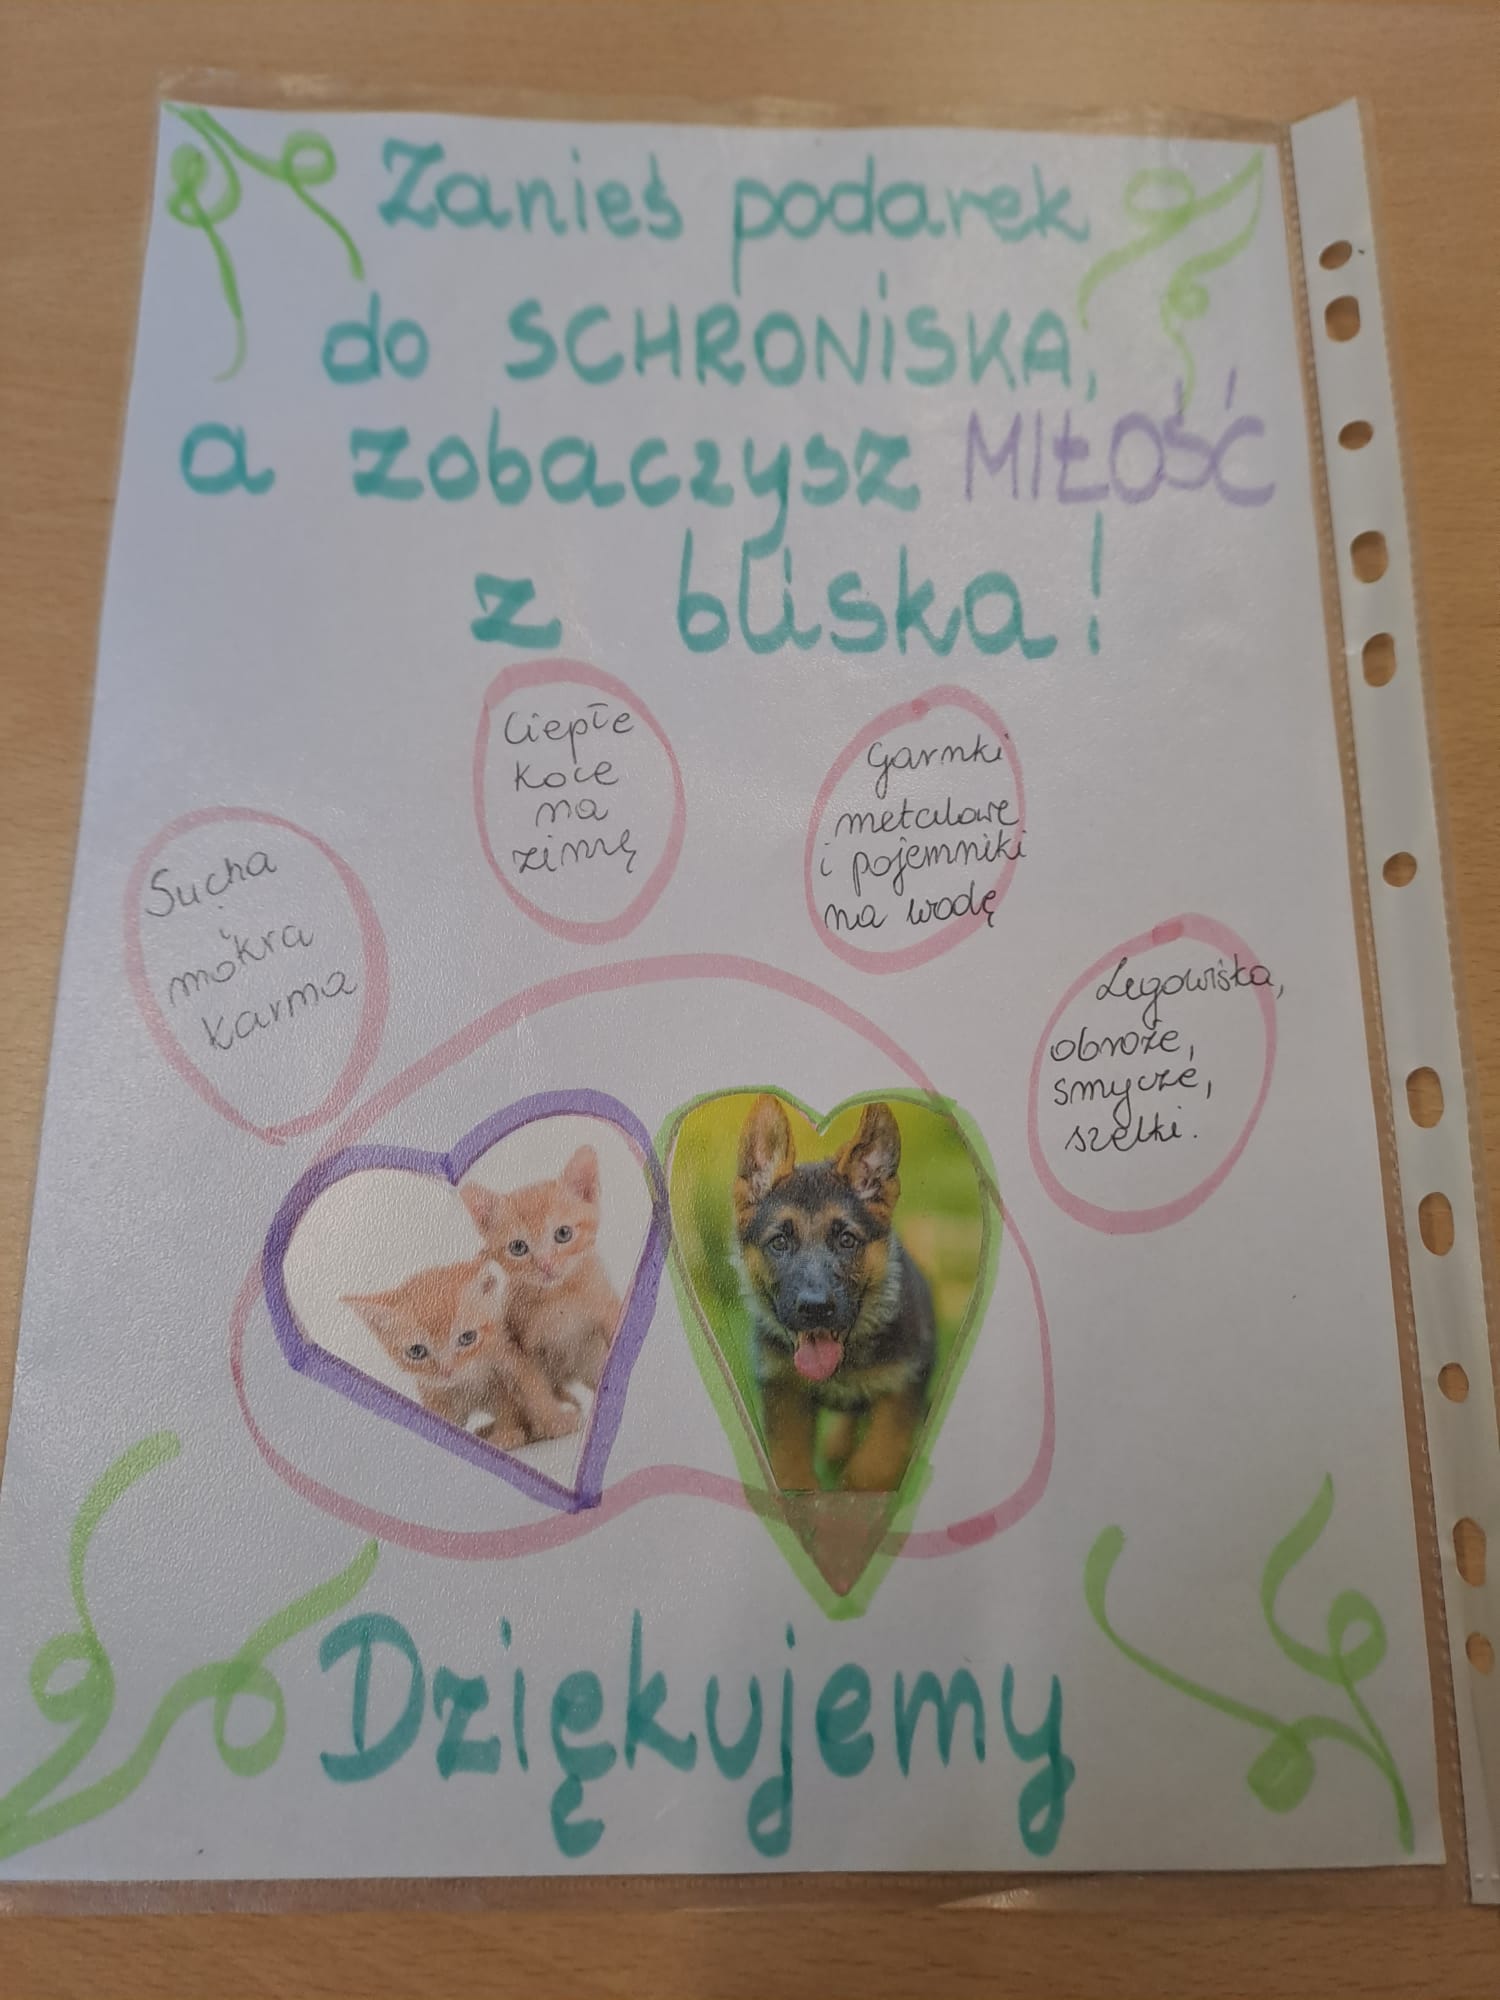 Zanieś podarek
do SCHRONISKA,
a zobaczysz MIŁOŚĆ
z bliska!
Ciepłe
koce
na
zimę
Garnki
metalowe
i pojemniki
na wodę
Sucha
i
mokra
karma
Legowiska,
obroże,
smycze,
szelki.
Dziękujemy